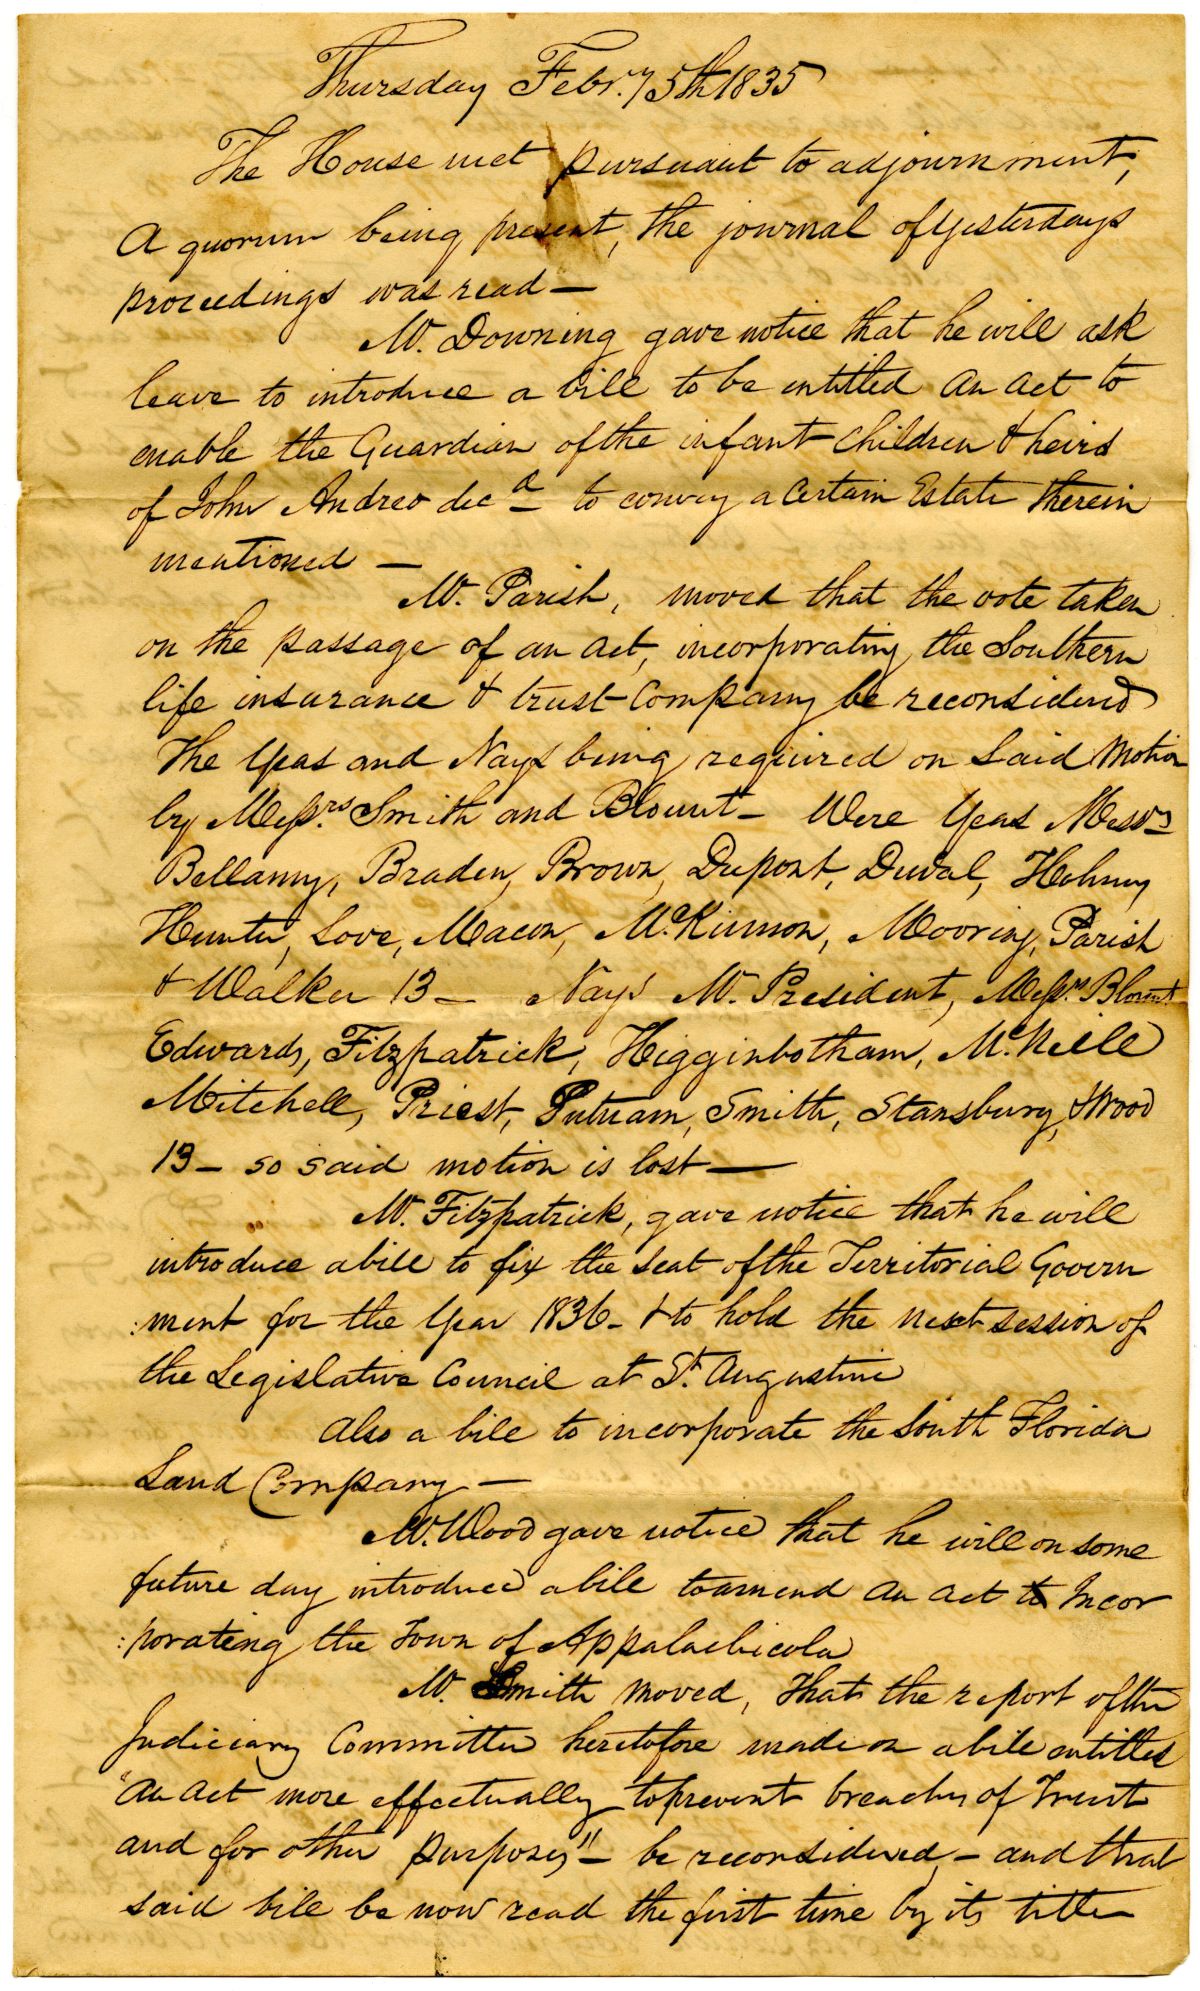 Thursday Febry 5th 1835
The House met pursuant to adjournment,
A quorum being present, the journal of yesterdays
proceedings was read —
Mr. Downing gave notice that he will ask
leave to introduce a bill to be entitled an act to
enable the Guardian of the infant children & heirs
of John Andreo decd to convey a certain Estate therein
mentioned —
Mr. Parish, moved that the vote taken
on the passage of an act, incorporating the Southern
life insurance & trust Company be reconsidered
The Yeas and Nays being required on said Motion
by Messrs Smith and Blount - Were Yeas Messrs
Bellamy, Braden, Brown, Dupont, Duval,
Hunter, Love, Macon, McKinnon, Mooring, Parish
& Walker 13 — Nays Mr. President, Messrs Blount
Edwards, Fitzpatrick, Higginbotham, McNeill
Mitchell, Priest, Putnam, Smith, Stansbury, & Wood
13 — so said motion is lost —
Mr. Fitzpatrick, gave notice that he will
introduce a bill to fix the seat of the Territorial Govern
:ment for the Year 1836 - & to hold the next session of
the Legislative Council at St. Augustine
Also a bill to incorporate the South Florida
Land Company —
Mr. Wood gave notice that he will on some
future day introduce a bill to amend an act to Incor
:porating the Town of Appalachicola
Mr. Smith moved, that the report of the
Judiciary Committee heretofore made on a bill entitled
"An act more effectually to prevent breaches of Trust
and for other purposes" - be reconsidered - and that
said bill be now read the first time by its title